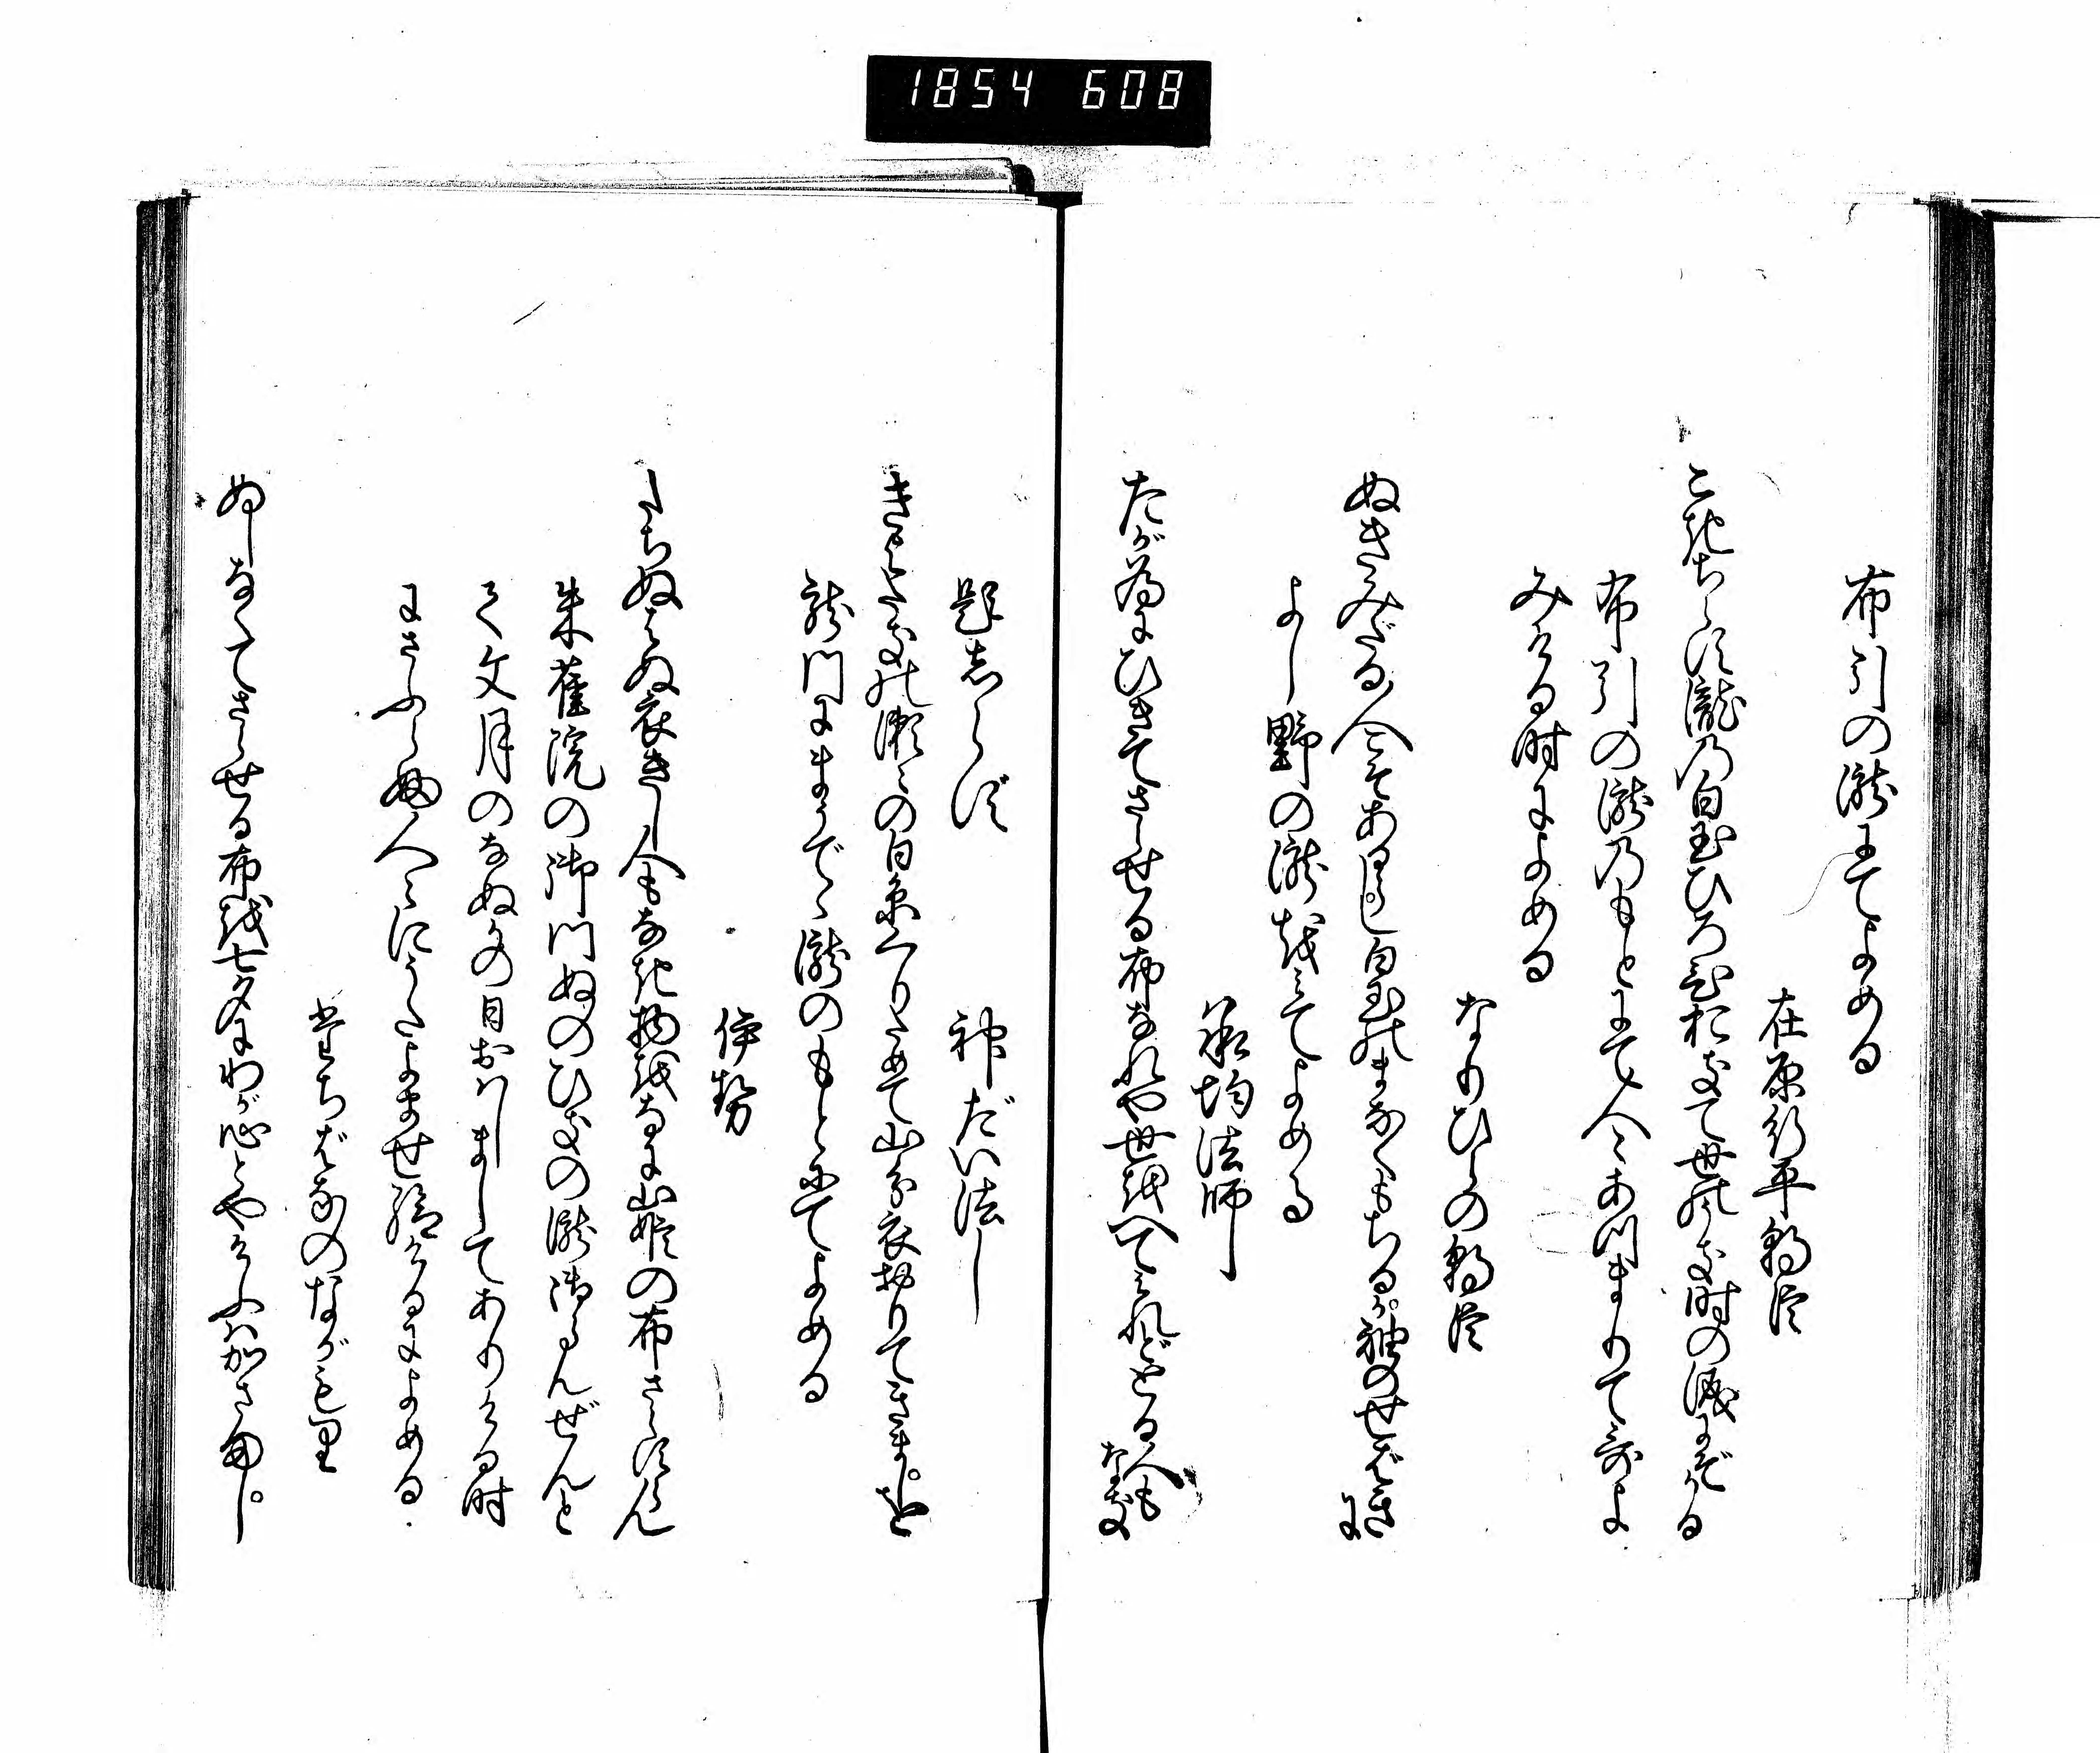 1854 608
布引の瀧にてよめる
在原行平朝臣
こきちらす瀧の白玉ひろひおきて世のうき時の涙にぞかる
布引の瀧のもとにて人々あつまりて哥よ
みける時によめる
なりひらの朝臣
ぬきみだる人こそあるらし白玉のまなくもちるか袖のせばきに
よし野の瀧をみてよめる
承均法師
たが為にひきてさらせる布なれや世をへてみれどとる人もなき
題しらず
神だい法し
きよたきの瀬々の白糸くりためて山分衣おりてきましを
龍門にまうでゝ瀧のもとにてよめる
伊勢
たちぬはぬ衣きし人もなき物をなに山姫の布さらすらん
朱雀院の御門ぬのひきの瀧御らんぜんと
て文月のなぬかの日おはしましてありける時
にさふらふ人々にうたよませ給けるによめる
たちばなのながもり
ぬしなくてさらせる布を七夕にわが心とやけふはかさまし